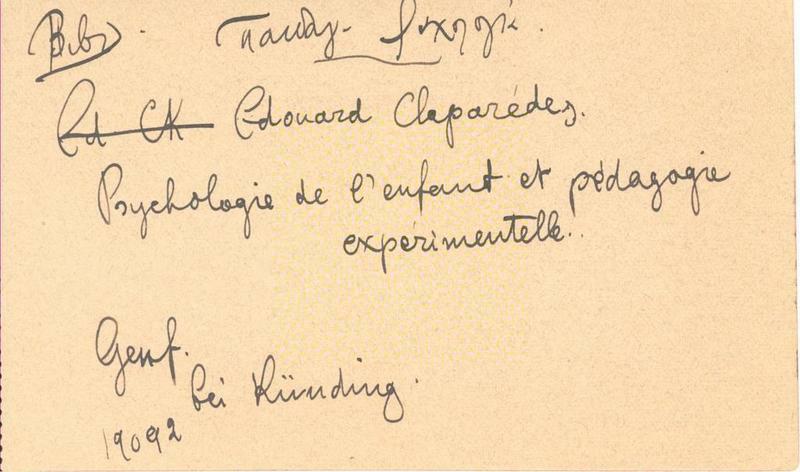 Βιβλ. Παιδαγ. ψυχολογ.
Ed Cl Edouard Claparédes.
Psychologie de l'enfant et pédagogie
expérimentelle.
Genf.
bei Künding.
1909²